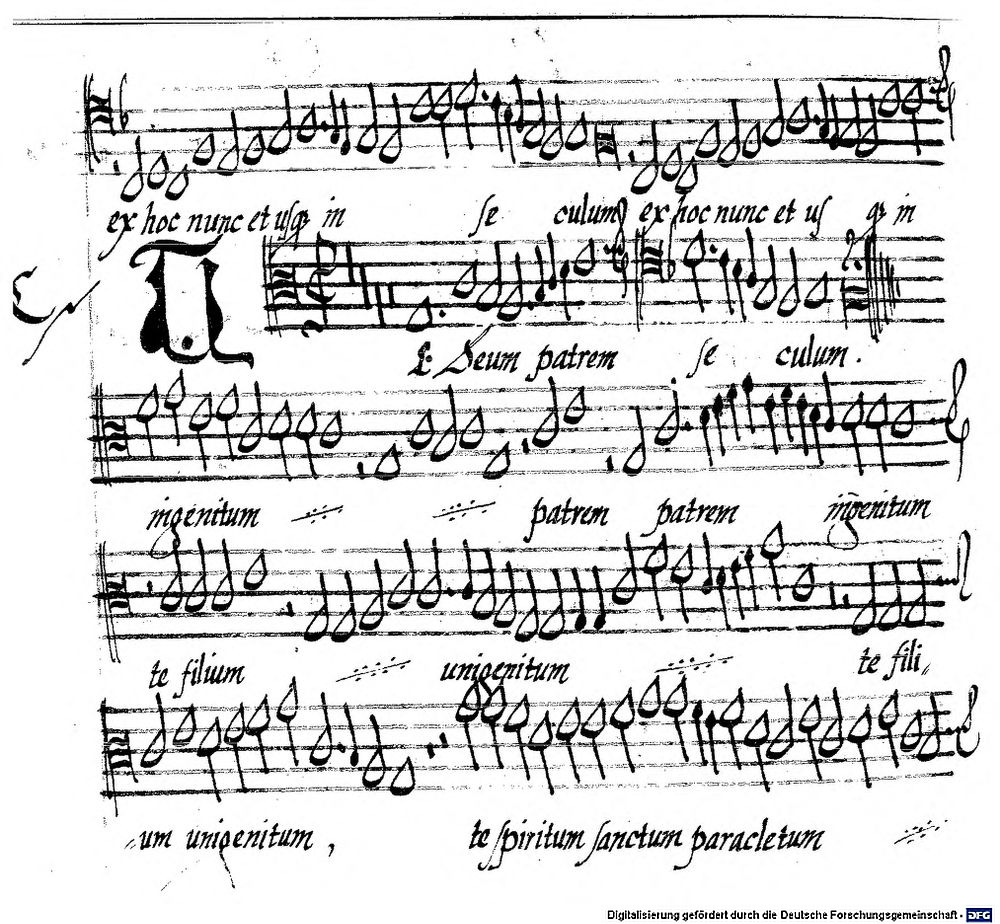 ex hoc nunc et usqꝫ in se culum ex hoc nunc et us qꝫ in
TE Deum patrem se culum.
ingenitum patrem patrem ingenitum
te filium unigenitum te fili„
um unigenitum, te spiritum sanctum paracletum
Digitalisierung gefördert durch die Deutsche Forschungsgemeinschaft - DFG